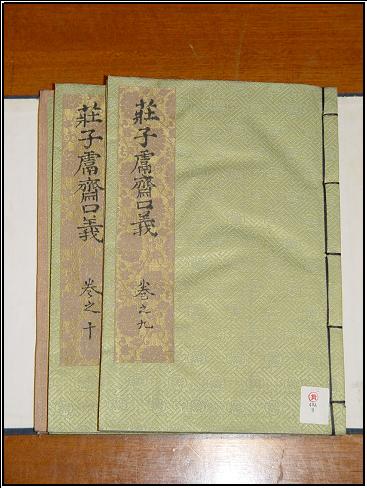 莊子鬳齋口義
卷之九
莊子鬳齋口義
卷之十